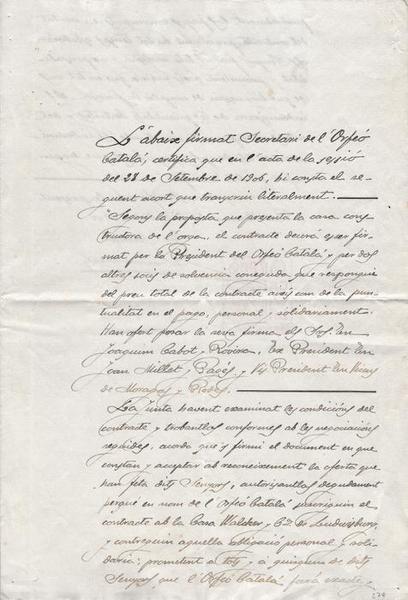 L'abaix firmat Secretari de l'Orfeó
Català, certifica que en l'acta de la sessió
del 28 de Setembre de 1906, hi consta el se-
guent acort que transcrich literalment.
"Segons la proposta que presenta la casa cons-
trudora de l'orga, el contracte deurá esser fir-
mat per la President del Orfeó Català y per dos
altres socis de solvencia coneguda que responguin
del preu total de la contracte aixís com de la pun-
tualitat en el pago, personal y solidariament.
Han ofert posar la seva firma els Srs. En
Joaquim Cabot y Rovira, Ex President En
Joan Millet y Pagés y Vis President En
de Moragas y Rodes.
La Junta havent examinat les condicions del
contracte y trobantles conformes ab les negociacions
seguides, acorda que's firmi el document en que
constan y aceptar ab reconeixement la oferta que
han fela dits Senyors, autorisantlos degudament
perqué en nom de l'Orfeó Català suscriguin el
contracte ab la Casa Walcker y Cía. de Ludwisburg,
y contreguin aquella obligació personal y soli-
daria: prometent a tots y á quiscun de dits
Senyors, que l'Orfeó Català
278